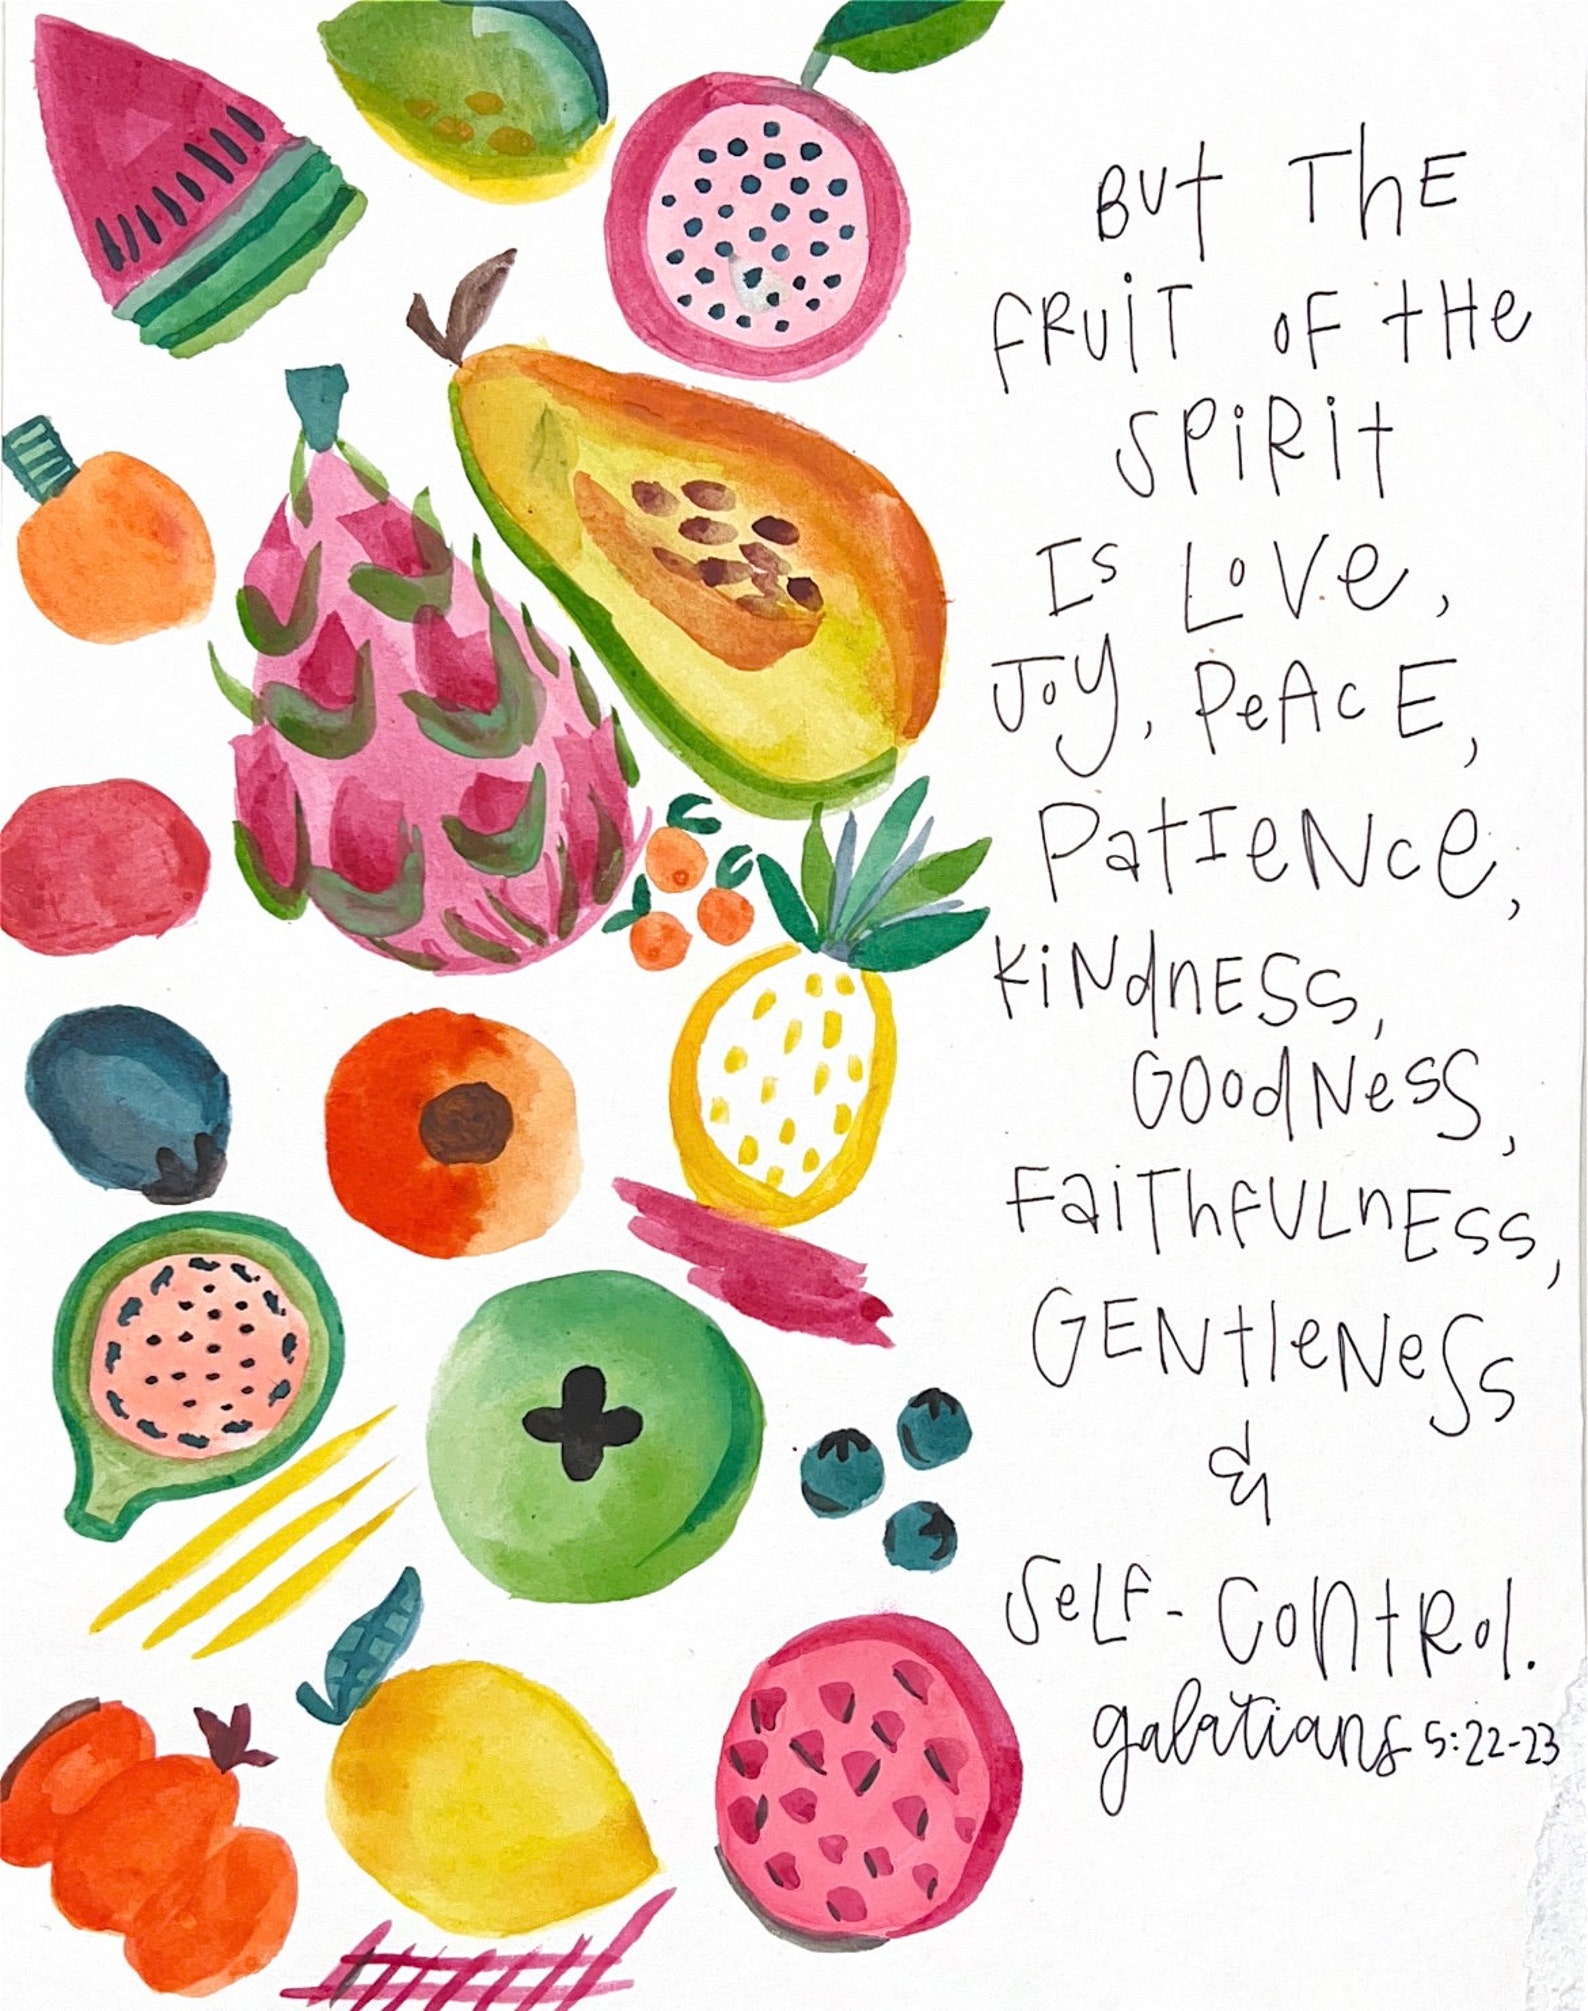 BUt ThE
FRUiT OF tHe
SPiRit
Is LoVe,
JoY, PeAcE,
PatIeNce,
KiNdnESS,
GOOdNesS,
FaiThFULnEss,
GENtleNeSS
&
SeLF-ContRol.
galatians 5:22-23